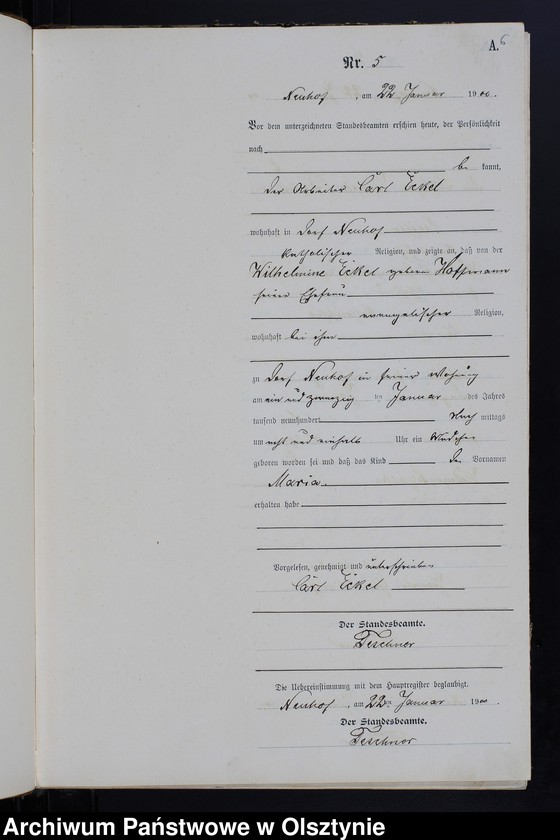 A. 6
Nr. 5
Neuhof, am 22 Januar 1900.
Vor dem unterzeichneten Standesbeamten erschien heute, der Persönlichkeit
nach
be kannt,
der Arbeiter Carl Eckel
wohnhaft in Dorf Neuhof
katholischer Religion, und zeigte an, daß von der
Wilhelmine Eckel geboren Hoffmann
seiner Ehefrau
evangelischer Religion,
wohnhaft bei ihm
zu Dorf Neuhof in seiner Wohnung
am ein und zwanzig ten Januar des Jahres
tausend neunhundert Nach mittags
um acht und einhalb Uhr ein Mädchen
geboren worden sei und daß das Kind den Vornamen
Maria
erhalten habe
Vorgelesen, genehmigt und unterschrieben
Carl Eckel
Der Standesbeamte.
Teschner
Die Uebereinstimmung mit dem Hauptregister beglaubigt.
Neuhof, am 22ten Januar 1900.
Der Standesbeamte.
Teschner
Archiwum Państwowe w Olsztynie